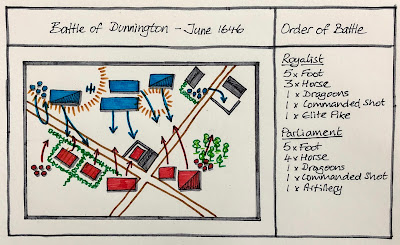 Battle of Dunnington - June 1646
Order of Battle
Royalist
5 x Foot
3 x Horse
1 x Dragoons
1 x Commanded Shot
1 x Elite Pike
Parliament
5 x Foot
4 x Horse
1 x Dragoons
1 x Commanded Shot
1 x Artillery